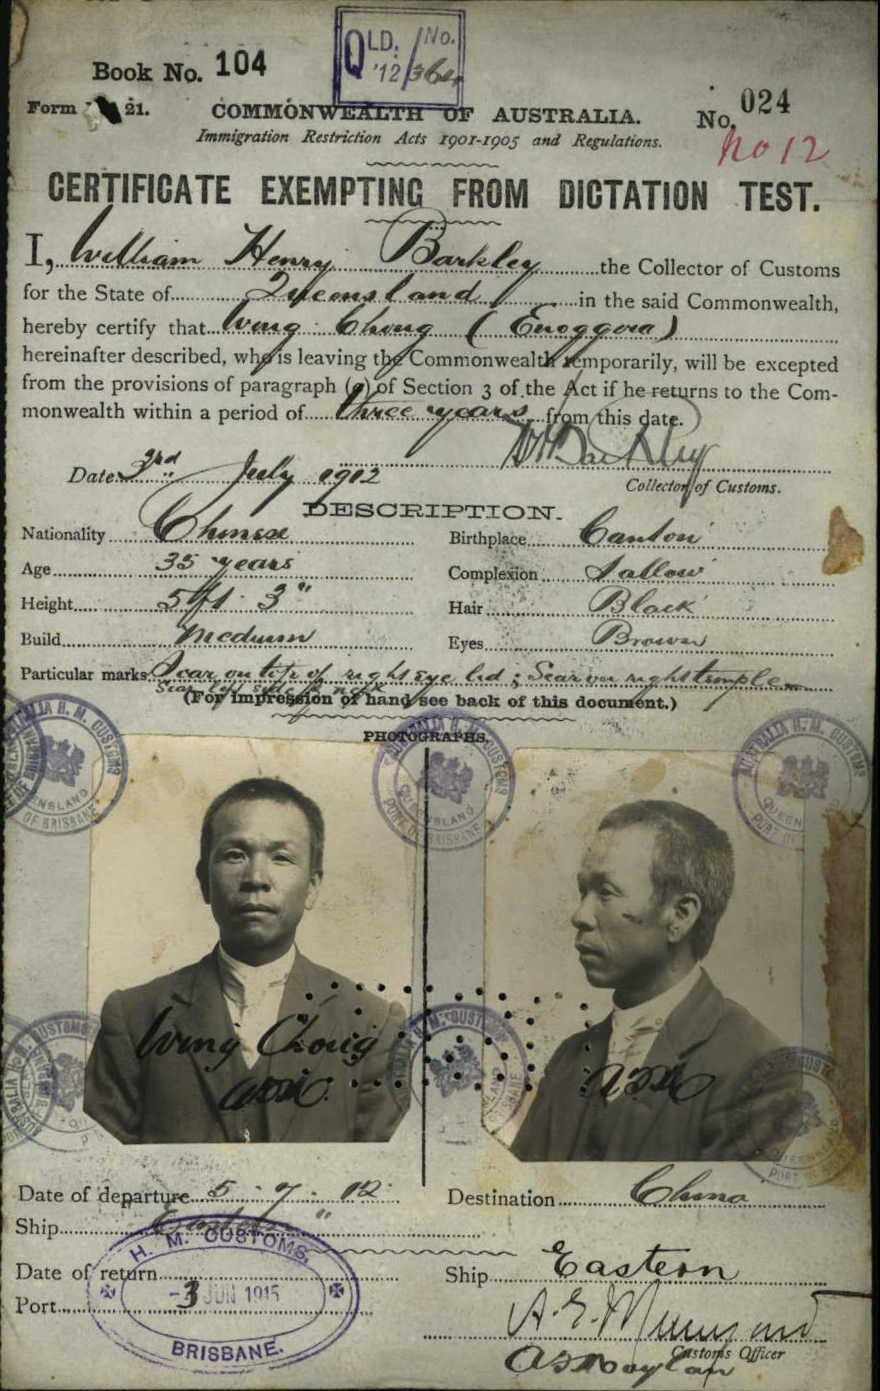 QLD. No.
'12
Book No. 104
Form 21.
COMMONWEALTH OF AUSTRALIA.
No. 024
Immigration Restriction Acts 1901-1905 and Regulations.
No 12
CERTIFICATE EXEMPTING FROM DICTATION TEST.
I, William Henry Barkley the Collector of Customs
for the State of Queensland in the said Commonwealth,
hereby certify that Wing Chong (Enoggera)
hereinafter described, who is leaving the Commonwealth temporarily, will be excepted
from the provisions of paragraph (a) of Section 3 of the Act if he returns to the Com-
monwealth within a period of three years from this date.
WHBarkley
Date 3rd July 1912
Collector of Customs.
DESCRIPTION.
Nationality Chinese
Birthplace Canton
Age 35 years
Complexion Sallow
Height 5 ft 3"
Hair Black
Build Medium
Eyes Brown
Particular marks Scar on top of right eye lid; Scar on right temple
Scar left side of neck
(For impression of hand see back of this document.)
PHOTOGRAPHS.
AUSTRALIA H. M. CUSTOMS
QUEENSLAND
PORT OF BRISBANE
Wing Chong
Date of departure 5.7.12
Destination China
Ship
H. M. CUSTOMS.
Date of return
-3 JUN 1915
Ship Eastern
Port
BRISBANE.
Customs Officer